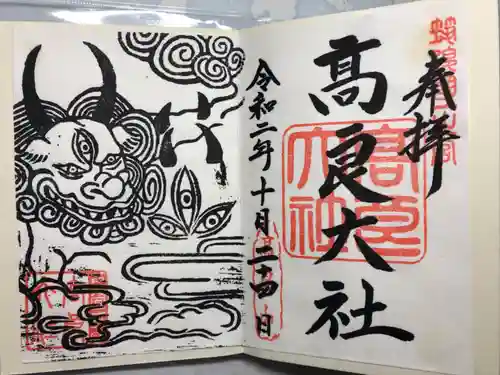 奉拝
髙良大社
令和二年十月二十四日